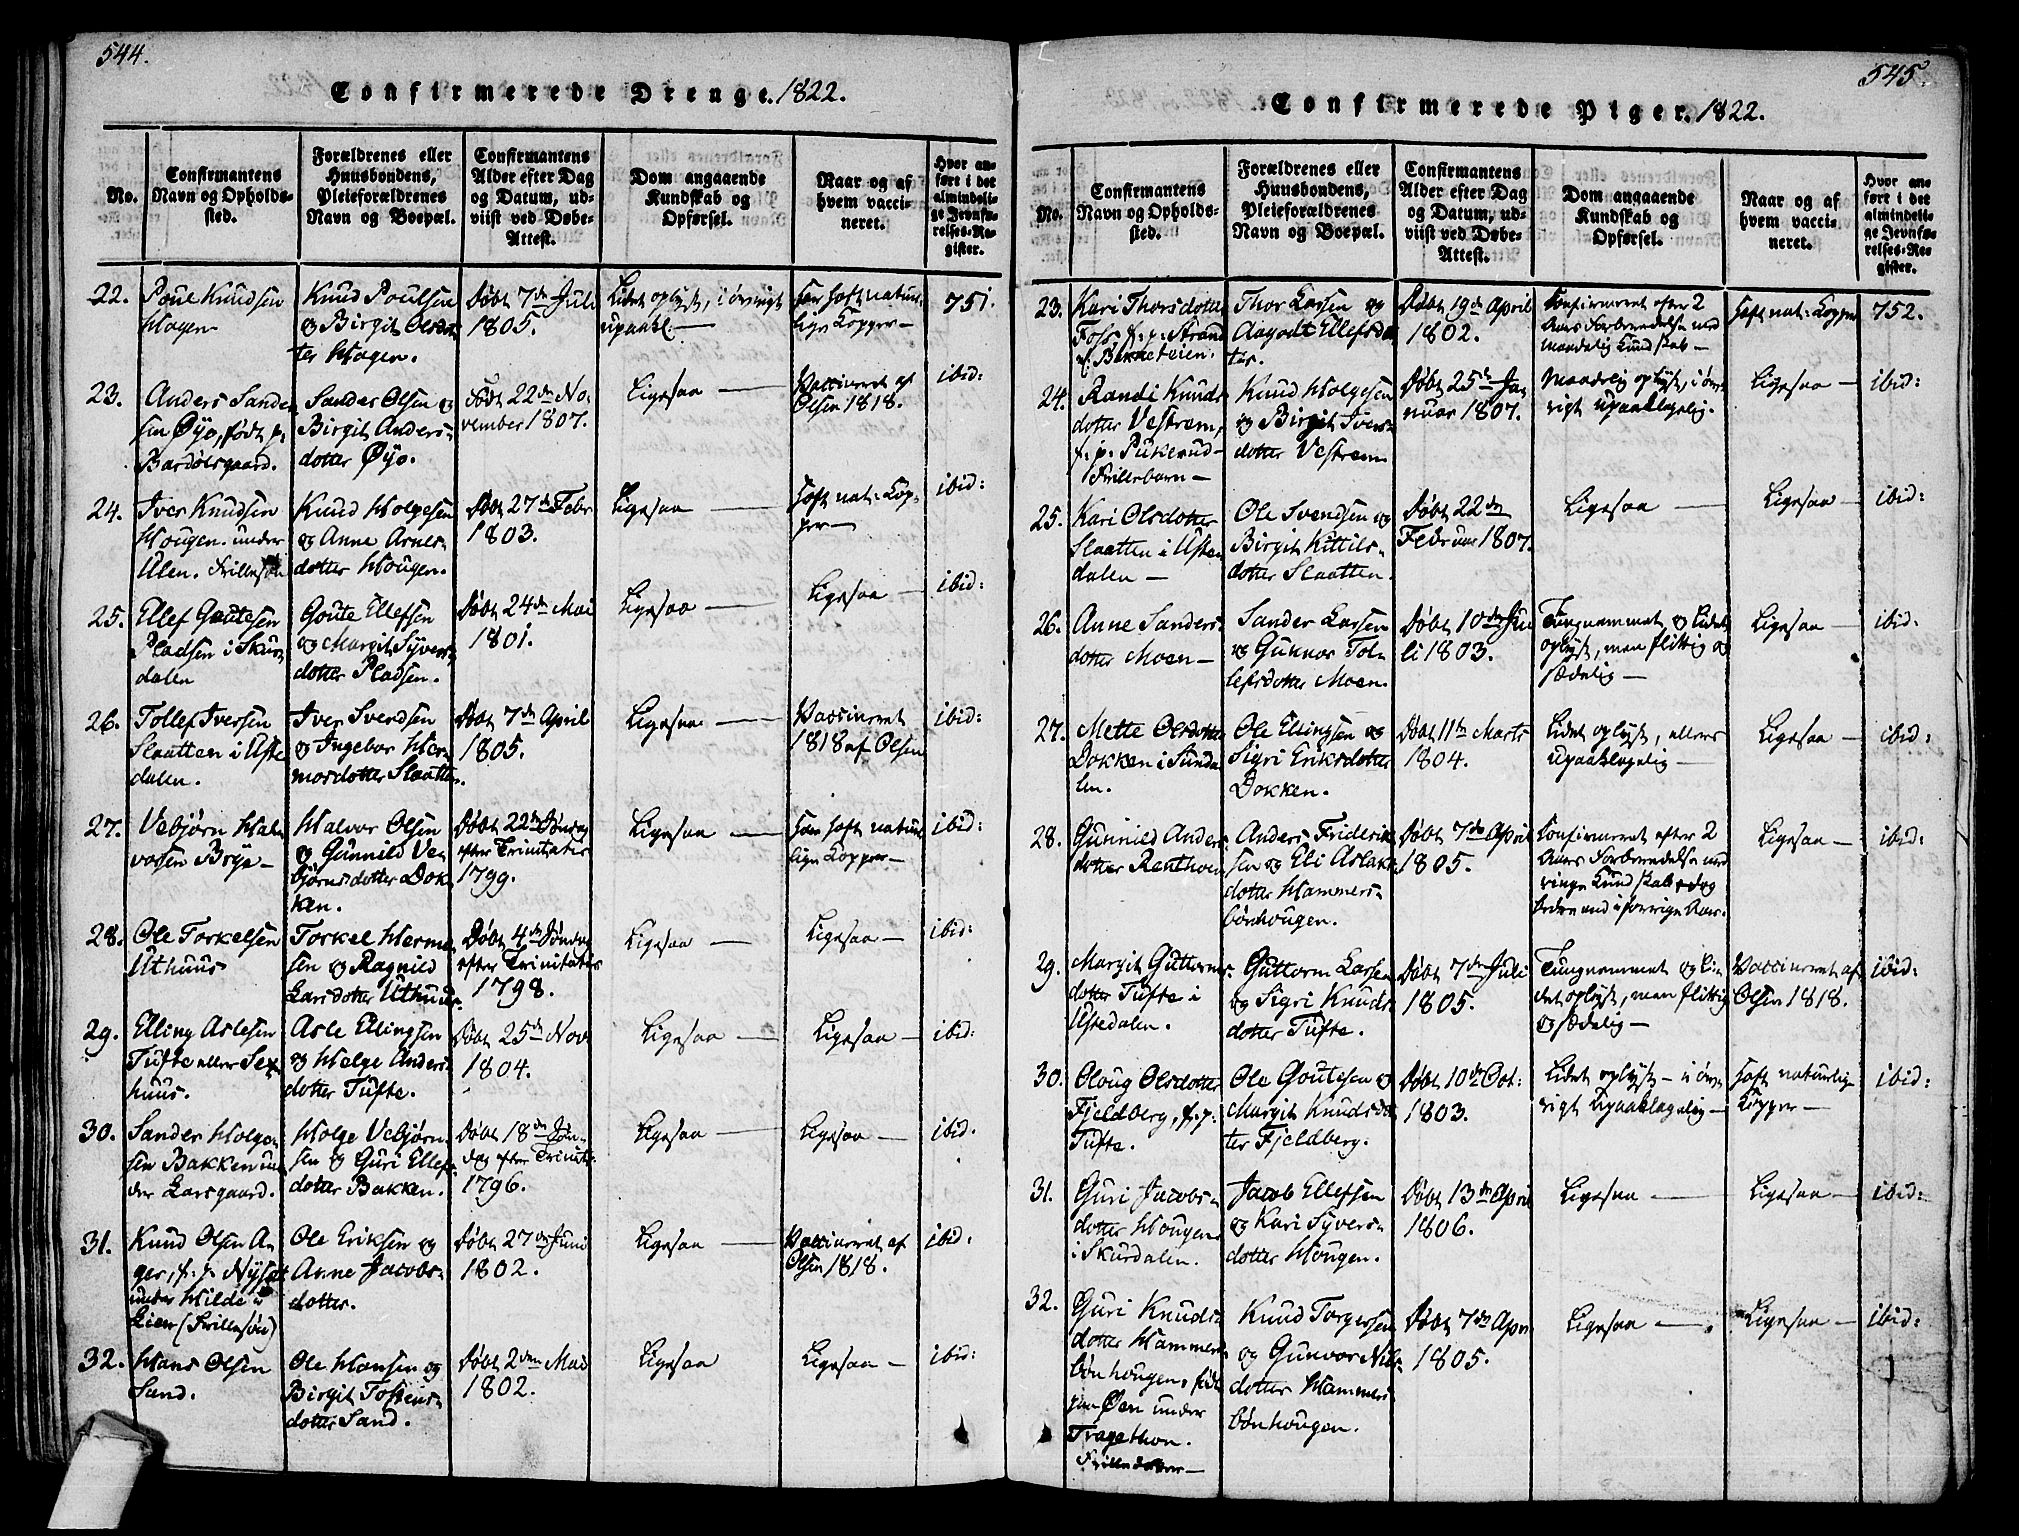 544.
Confirmerede Drenge. 1822.
No.
Confirmantens
Navn og Opholds-
sted.
Forældrenes eller
Huusbondens,
Pleieforældrenes
Navn og Boepæl.
Confirmantens
Alder efter Dag
og Datum, ud-
viist ved Døbe-
Attest.
Dom angaaende
Kundskab og
Opførsel.
Naar og af
hvem vacci-
neret.
Hvor an-
ført i det
almindeli-
ge Jevnfø-
relses-Re-
gister.
22.
Poul Knudsen
Hagen
Knud Poulsen
og Birgit Olsdat
ter Hagen.
Døbt 7de Juli
1805.
Lidet oplyst, i øvrigt
upaakl.
har haft natur-
lige Kopper
751.
23.
Anders Sander
sen Øyo, født p.
Bardølsgaard.
Sander Olsen og
Birgit Anders-
dotter Øyo.
Født 22de No-
vember 1807.
Ligesaa
Vaccineret af
Olsen 1818.
ibid:
24.
Iver Knudsen
Hougen under
Ulen. Frillesøn
Knud Holgesen
og Anne Arnes-
dotter Hougen.
Døbt 27de Febr
1803.
Ligesaa
haft nat: Kop-
per
ibid:
25.
Ellef Goutesen
Pladsen i Skur-
dalen
Goute Ellefsen
og Margit Syvers
dotter Pladsen.
Døbt 24de Mai
1801.
Ligesaa
Ligesaa
ibid:
26.
Tollef Iversen
Slaatten i Uste
dalen.
Iver Svendsen
og Ingebor Her-
mosdotter Slaatten.
Døbt 7de April
1805.
Ligesaa
Vaccineret
1818 af Olsen
ibid:
27.
Vebjørn Hal
vorsen Brye
Halvor Olsen
og Gunnild Ve-
bjørnsdotter Dok
ken.
Døbt 22de Søndag
efter Trinitatis
1799.
Ligesaa
har haft natur
lige Kopper
ibid:
28.
Ole Torkelsen
Uthuus
Torkel Herme
sen og Ragnild
Larsdotter Uthuus.
Døbt 4de Søndag
efter Trinitatis
1798.
Ligesaa
Ligesaa
ibid:
29.
Elling Aslesen
Tufte eller Set
huus.
Asle Ellingsen
og Helge Anders
dotter Tufte.
Døbt 25de Nov
1804.
Ligesaa
Ligesaa
ibid:
30.
Sander Holge
sen Bakken un
der Larsgaard.
Holge Vebjørn-
sen og Guri Ellefs
dotter Bakken.
Døbt 18de Søn-
dag efter Trinita-
1796.
Ligesaa
Ligesaa
ibid.
31.
Knud Olsen A-
ger, f. p. Nyset
under Hilde i
Lien (Frillesøn)
Ole Eriksen og
Anne Jacobs-
dotter.
Døbt 27de Juni
1802.
Ligesaa
Vaccineret af
Olsen 1818.
ibid:
32.
Hans Olsen
Sand.
Ole Hansen og
Birgit Tostens-
dotter Sand.
Døbt 2den Mai
1802.
Ligesaa
Ligesaa
ibid:
545.
Confirmerede Piger. 1822.
No.
Confirmantens
Navn og Opholds-
sted.
Forældrenes eller
Huusbondens,
Pleieforældrenes
Navn og Boepæl.
Confirmantens
Alder efter Dag
og Datum, ud-
viist ved Døbe-
Attest.
Dom angaaende
Kundskab og
Opførsel.
Naar og af
hvem vacci-
neret.
Hvor an-
ført i det
almindeli-
ge Jevnfø-
relses-Re-
gister.
23.
Kari Thorsdotter
Foss. f. p. Strand
Thor Larsen og
Aagodt Ellefsdo
ter.
Døbt 19de April
1802.
Confirmeret efter 2
Aars Forberedelse med
maadelig Kundskab
haft nat: Kopper
752.
24.
Randi Knuds
dotter Vestrem,
f. p. Pukerud
Frillebarn
Knud Holgesen
og Birgit Ivers-
dotter Vestrem
Døbt 25de Ja
nuar 1807.
Maadelig oplyst, i øv-
rigt upaaklagelig.
Ligesaa
ibid:
25.
Kari Olsdotter
Slaatten i Uste
dalen
Ole Svendsen og
Birgit Kittils-
dotter Slaatten.
Døbt 22de
Februar 1807.
Ligesaa
Ligesaa
ibid:
26.
Anne Sanders-
dotter Moen
Sander Larsen
og Gunnor Tol-
lefsdotter Moen.
Døbt 10de Ju
li 1803.
Tungnemmet og lidet
oplyst, men flittig og
sædelig
Ligesaa
ibid:
27.
Mette Olsdotter
Dokken i Sunda-
len.
Ole Ellingsen og
Sigri Eriksdotter
Dokken.
Døbt 11te Marts
1804.
Lidet oplyst, ellers
upaaklagelig
Ligesaa
ibid:
28.
Gunnild Anders
dotter Renthoen
Anders Friderik
sen og Eli Aslaks
dotter Hammers-
bønhougen.
Døbt 7de April
1805.
Confirmeret efter 2
Aars Forberedelse med
ringe Kundskab, dog
bedre end i forrige Aar.
Ligesaa
ibid:
29.
Margit Guttorms
dotter Tufte i
Ustedalen.
Guttorm Larsen
og Sigri Knuds
dotter Tufte.
Døbt 7de Juli
1805.
Tungnemmet og li-
det oplyst, men flittig
og sædelig
Vaccineret af
Olsen 1818.
ibid:
30.
Oloug Olsdotter
Fjeldberg, f. p.
Tufte.
Ole Goutesen og
Margit Knudsdo
ter Fjeldberg.
Døbt 10de Oct:
1803.
Lidet oplyst - i øv-
rigt upaaklagelig
haft naturlige
Kopper
ibid:
31.
Guri Jacobs-
dotter Hougen
i Skurdalen.
Jacob Ellefsen
og Kari Syvers-
dotter Hougen.
Døbt 13de April
1806.
Ligesaa
Ligesaa
ibid:
32.
Guri Knuds
dotter Hammers
bønhougen, født
paa Øen under
Tragethon.
Frilledotter
Knud Torgersen
og Gunvor Niels
dotter Hammers
bønhougen.
Døbt 7de Apri
1805.
Ligesaa
Ligesaa
ibid: